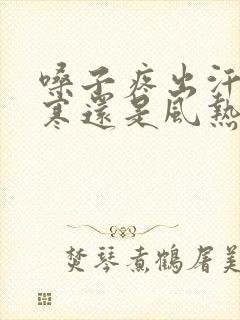 嗓子疼出汗
寒還是風熱
焚琴煮鶴屠美